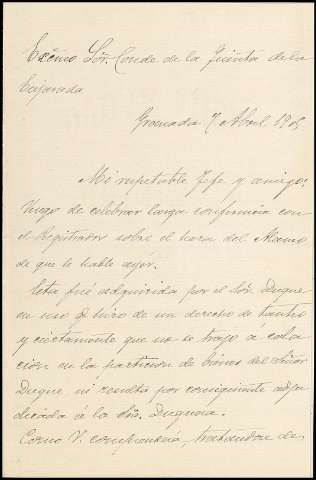 Excmo Sór. Conde de la Quinta de la
Enjarada
Granada 7 Abril 19
Mi respetable Jefe y amigo:
Vengo de celebrar larga conferencia con
el Registrador sobre el haza del Alamo
de que le hable ayér.
Esta fué adquirida por el Sór. Duque
en uso q hizo de un derecho de tanteo
y ciertamente que no se trajo á cola
cion en la particion de bienes del Señor
Duque, ni resulta por consiguiente adju
dicada á la Sra. Duquesa.
Como V. comprenderá, tratándose de